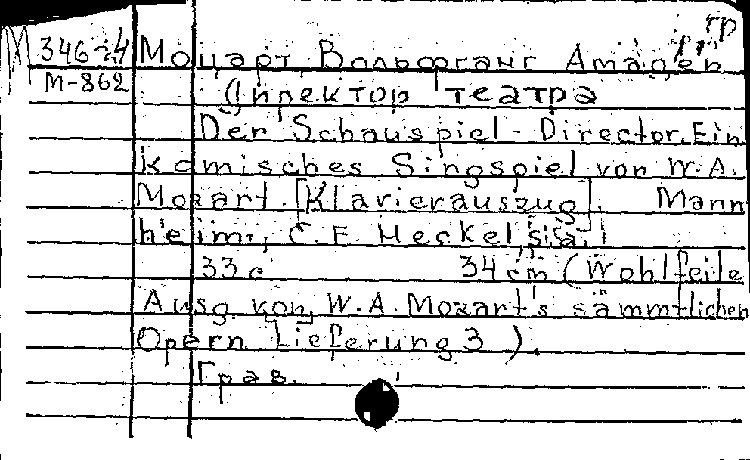 гр
М 346-4 Моцарт, Вольфганг Амадей
М-862 Директор театра
Der Schauspiel-Director. Ein
komisches Singspiel von W.A.
Mozart. [Klavierauszug]. Mann
heim., C.F. Heckel, s.a.
33 с 34 cm (Wohlfeile
Ausg. von W.A. Mozart's sämmtlichen
Opern Lieferung 3 ).
Грав.